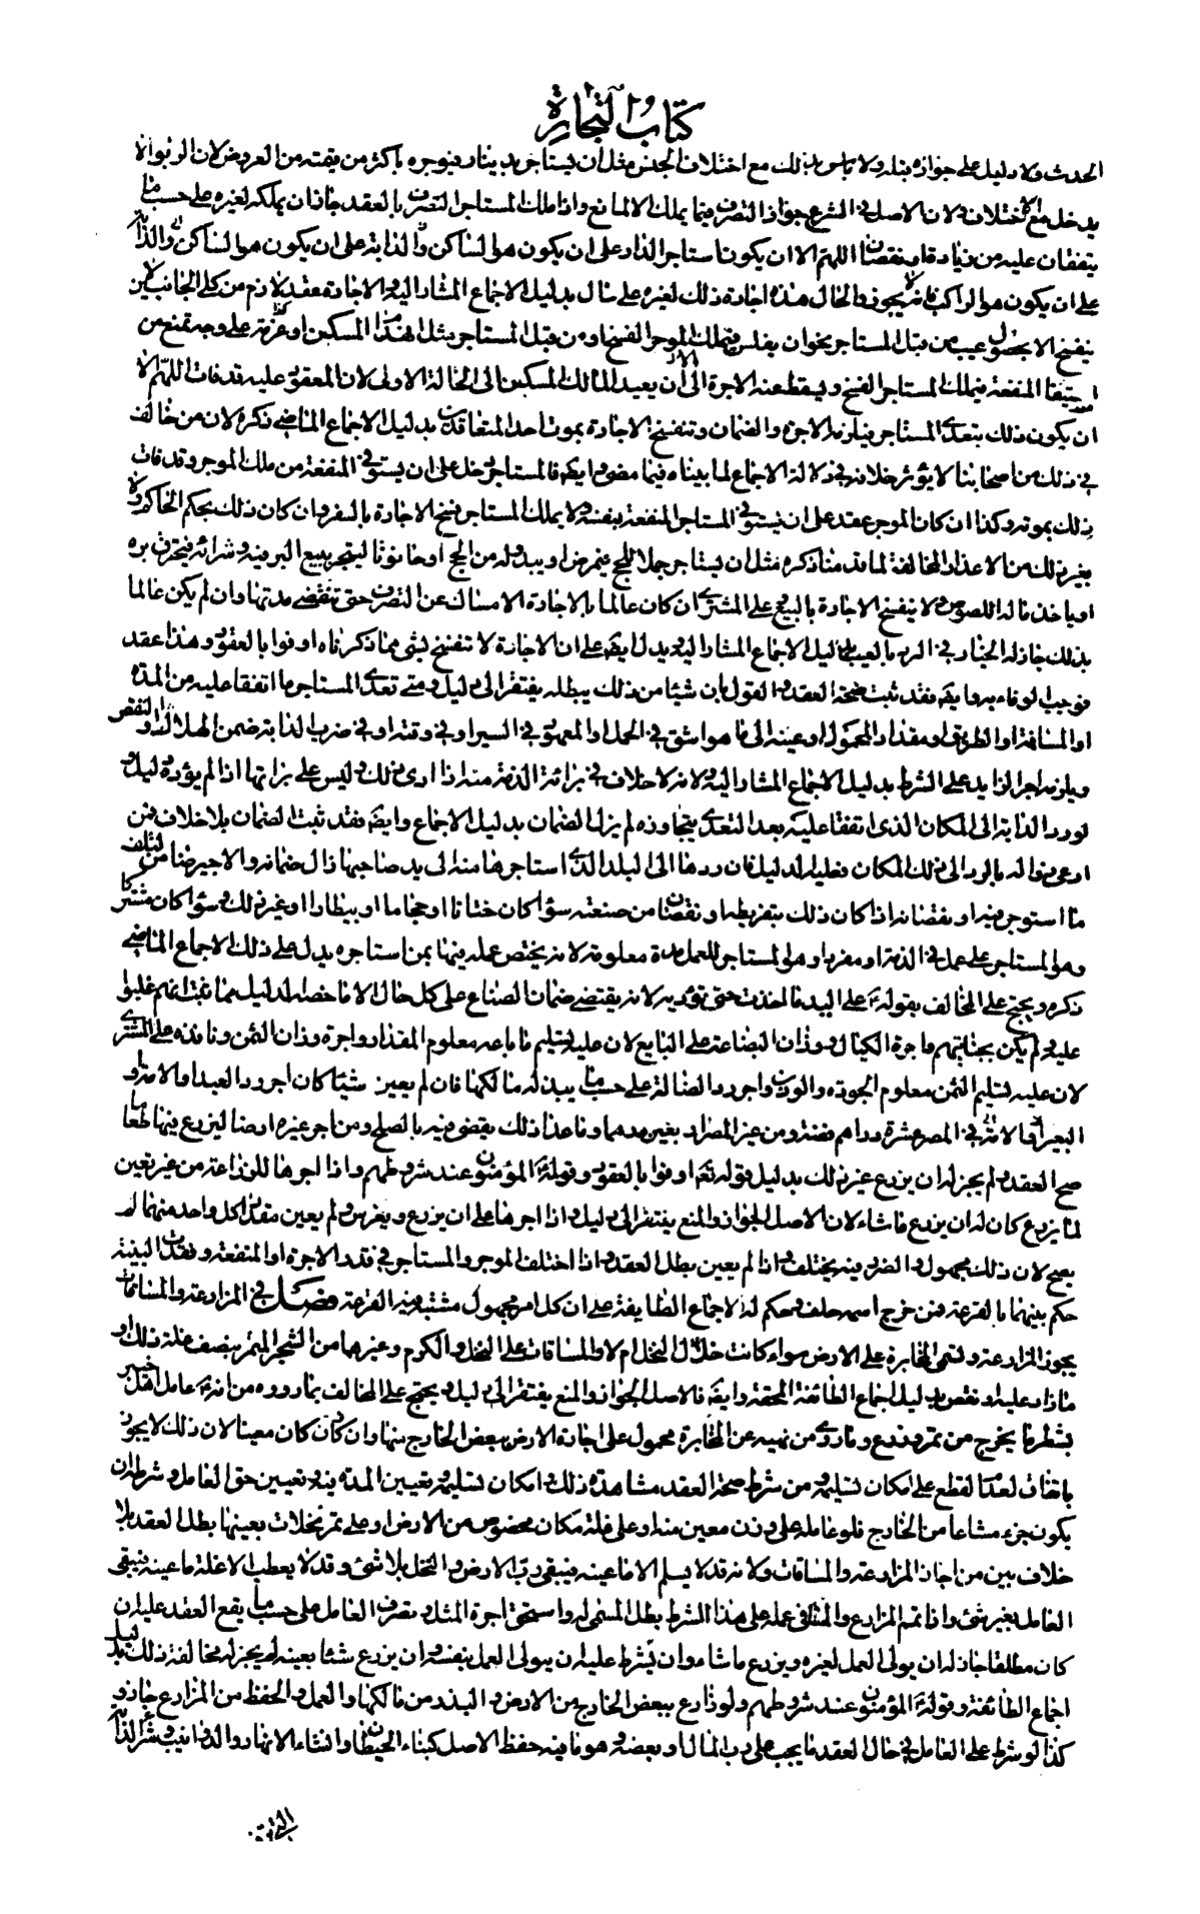 كتاب التجارة
الحدث ولا دليل على جوازه بذلك ولا بأس بذلك مع اختلاف الجنس مثل ان يستاجر بدينار فيوجره باكثر من قيمته من العروض لان الربوا لا
يدخل مع الاختلاف ولان الاصل في الشرع جواز التصرف فيما يملك الا لمانع واذا ملك المستاجر التصرف بالعقد جاز ان يملكه لغيره على حسب ما
يتفقان عليه من زيادة او نقصان اللهم الا ان يكون استاجر الدار على ان يكون هو الساكن والدابة على ان يكون هو الساكن والدابة
على ان يكون هو الراكب فانه لا يجوز والحال هذه اجارة ذلك لغيره على حال بدليل الاجماع المشار اليه والاجارة عقد لازم من كلي الجانبين لا
ينفسخ الا بحصول عيب من قبل المستاجر نحو ان يفلس فيملك الموجر الفسخ او من قبل المستاجر مثل انهدام المسكن او غرقه على وجه تمنع من
استيفاء المنفعة فيملك المستاجر الفسخ ويسقط عنه الاجرة الى ان يعيد المالك المسكن الى الحالة الاولى لان المعقود عليه قد فات اللهم الا
ان يكون ذلك بتعدى المستاجر فيلزمه الاجرة والضمان وتنفسخ الاجارة بموت احد المتعاقدين بدليل الاجماع الماضي ذكره لان من خالف
في ذلك من اصحابنا لا يؤثر خلافه في دلالة الاجماع لما بيناه فيما مضى وايضا فالمستاجر دخل على ان يستوفي المنفعة من ملك الموجر وقد فات
ذلك بموته وكذا ان كان الموجر عقد على ان يستوفي المستاجر المنفعة بنفسه ولا يملك المستاجر فسخ الاجارة بالسفر وان كان ذلك بحكم الحاكم ولا
بغير ذلك من الاعذار المخالفة لما قدمنا ذكره مثل ان يستاجر جملا للحج فيمرض او يبدو له من الحج او حانوتا ليتجر ببيع البر فيه وشرائه فيحترق بره
او ياخذ ماله اللصوص ولا تنفسخ الاجارة بالبيع وعلى المشتري ان كان عالما بالاجارة الامساك عن التصرف حتى تنقضي مدتها وان لم يكن عالما
بذلك جاز له الخيار في الرد بالعيب بدليل الاجماع المشار اليه ويدل ايضا على ان الاجارة لا تنفسخ بشئ مما ذكرناه اوفوا بالعقود وهذا عقد
فوجب الوفاء به وايضا فقد ثبت صحة العقد والقول بان شيئا من ذلك يبطله يفتقر الى دليل ومتى تعدى المستاجر ما اتفقا عليه من المدة
او المسافة او الطريق او مقدار المحمول او عينه الى ما هو اشق في الحمل او المعهود في السير او في وقته او في ضرب الدابة ضمن الهلاك او النقص
ويلزمه اجر الزايد على الشرط بدليل الاجماع المشار اليه ولانه لا خلاف في برائة الذمة منه اذا ادى ذلك وليس على برائتها اذا لم يؤده دليل و
لو رد الدابة الى المكان الذى اتفقا عليه بعد التعدى بتجاوزه لم يزل الضمان بدليل الاجماع وايضا فقد ثبت الضمان بلا خلاف فمن
ادعى زواله بالرد الى ذلك المكان فعليه الدليل فان ردها الى البلد الذى استاجرها منه الى يد صاحبها زال ضمانه والاجير ضامن لتلف
ما استوجر فيه او نقصانه اذا كان ذلك بتفريطه او نقصان من صنعته سواء كان ختانا او حجاما او بيطارا او غير ذلك وسواء كان مشتركا
وهو المستاجر على عمل في الذمة او مفردا وهو المستاجر للعمل مدة معلومة لانه يختص عمله فيها بمن استاجره يدل على ذلك الاجماع الماضي
ذكره ويحتج على المخالف بقوله ع على اليد ما اخذت حتى تؤديه لانه يقتضي ضمان الصناع على كل حال الا ما خصه الدليل مما ثبت انهم غلبوا
عليه ولم يكن بجنايتهم واجرة الكيال ووزان البضاعة على البايع لان عليه تسليم ما باعه معلوم المقدار واجرة وزان الثمن وناقده على المشتري
لان عليه تسليم الثمن معلوم الجودة والوزن واجر رد الضالة على حسب ما يبذله مالكها فان لم يعين شيئا كان اجر رد العبد او الامة او
البعير في المصر عشرة دراهم فضة ومن غير المصر اربعين درهما وما عدا ذلك يقضى فيه بالصلح ومن اجر غيره ارضا ليزرع فيها طعاما
صح العقد ولم يجز له ان يزرع غير ذلك بدليل قوله تعالى اوفوا بالعقود وقوله ع المؤمنون عند شروطهم واذا اجرها للزراعة من غير تعيين
لما يزرع كان له ان يزرع ما شاء لان الاصل الجواز والمنع يفتقر الى دليل واذا اجرها على ان يزرع ويغرس ولم يعين مقدار كل واحد منهما لم
يصح لان ذلك مجهول والضرر فيه يختلف واذا لم يعين بطل العقد واذا اختلف الموجر والمستاجر في قدر الاجرة او المنفعة وفقدت البينة
حكم بينهما بالقرعة فمن خرج اسمه حلف وحكم له لاجماع الطايفة على ان كل امر مجهول مشتبه فيه القرعة فصل في المزارعة والمساقات
يجوز المزارعة وتسمى المخابرة على الارض سواء كانت خلال النخل ام لا والمساقات على النخل والكرم وغيرهما من الشجر المثمر بنصف غلة ذلك او
ما زاد عليه او نقص بدليل اجماع الطائفة المحقة وايضا فالاصل الجواز والمنع يفتقر الى دليل ويحتج على المخالف بما رووه من انه ع عامل اهل خيبر
بشطر ما يخرج من تمر وزرع وما روى من نهيه عن المخابرة محمول على اجارة الارض ببعض الخارج منها وان كان معينا لان ذلك لا يجوز
باتفاق لعدم القطع على امكان تسليمه ومن شرط صحة العقد مشاهدة ذلك وامكان تسليمه وتعيين المدة فيه وتعيين حق العامل وشرطه ان
يكون جزء مشاعا من الخارج فلو عامله على وزن معين منه او على غلة مكان مخصوص من الارض او على تمر نخلات بعينها بطل العقد بلا
خلاف بين من اجاز المزارعة والمساقات ولانه قد لا يسلم الا ما عينه فيبقى رب الارض والنخل بلا شئ وقد لا يعطب الا غلة ما عينه فيبقى
العامل بغير شئ واذا تم المزارع والمساقي عمله على هذا الشرط بطل المسمى له واستحق اجرة المثل وتصرف العامل على حسب ما يقع العقد عليه ان
كان مطلقا جاز له ان يولى العمل لغيره ويزرع ما شاء وان شرط عليه ان يتولى العمل بنفسه وان يزرع شئا بعينه لم يجز له مخالفة ذلك بدليل
اجماع الطائفة وقوله ع المؤمنون عند شروطهم ولو زارع ببعض الخارج من الارض والبذر من مالكها والعمل والحفظ من المزارع جاز و
كذا لو شرط على العامل في حال العقد ما يجب على رب المال او بعضه وهو ما فيه حفظ الاصل كبناء الحيطان وانشاء الانهار والدواليب وشراء الدابة